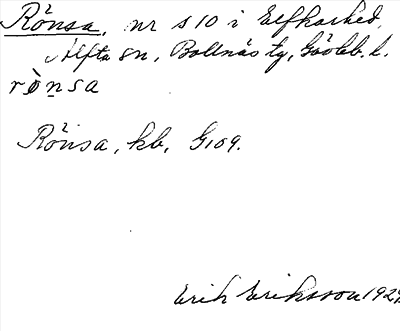 Rönsa, nr s 10 i Elfkarhed,
Alfta sn, Bollnäs tg, Gävleb. l.
rὸn̲sa
Rönsa, kb, G109.
Erik Eriksson 1929.